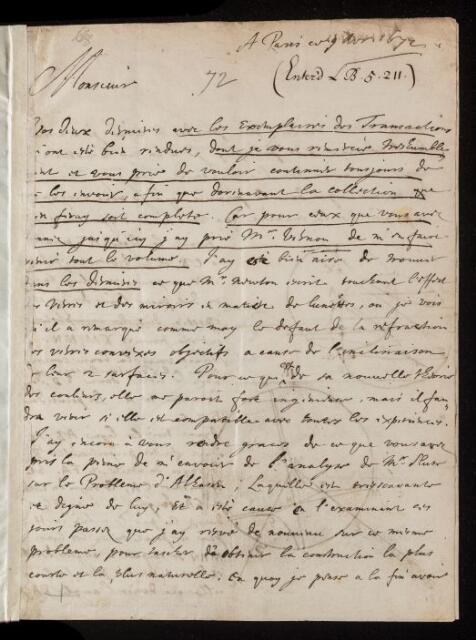 A Paris ce 9 1672
72
(Enterd LB. 5. 211.)
Monsieur
deux dernieres avec les Exemplaires des Transactions
ont esté bien rendues, dont je vous remercie treshumble
et vous prie de vouloir continuer tousjours de
les envoier, afin que doresnavant la collection que
j'en feray soit complete. Car pour ceux que vous avez
jusqu'icy j'ay prié Mr. Vernon de m'en faire
tout le volume. J'ay esté bien aise de trouver
dans les dernieres ce que Mr. Newton escrit touchant l'effect
des verres et des miroirs en matiere de lunettes, ou je vois
qu'il a remarqué comme moy le defaut de la refraction
des verres convexes objectifs a cause de l'inclinaison
de leur 2 surfaces. Pour ce qui est de sa nouvelle Theorie
des couleurs, elle me paroit fort ingenieuse, mais il fau-
dra veoir si elle est compatible avec toutes les experiences.
J'ay encore à vous rendre graces de ce que vous avez
pris la peine de m'envoier de l'analyse de Mr. Sluse
sur le Probleme d'Alhazen, Laquelle est tressçavante
et digne de luy, Et a esté cause en l'examinant ces
jours passez que j'ay resvé de nouveau sur ce mesme
probleme, pour tascher d'obtenir la construction la plus
courte et la plus naturelle. En quoy je pense a la fin avoir